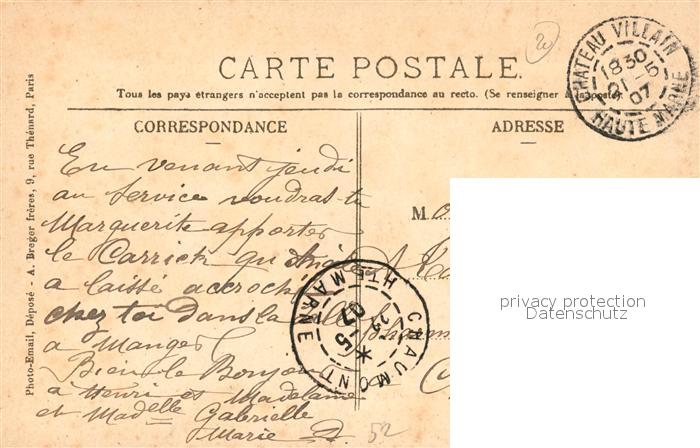 CARTE POSTALE.
Tous les pays étrangers n'acceptent pas la correspondance au recto. (Se renseigner à la poste)
CORRESPONDANCE
En venant jeudi
au Service voudras-tu
Marguerite apporter
le Carrick qu'
a laissé accroché
chez toi dans la salle
à Manger
Bien le Bonjour
à Henri et Madelaine
et Madelle Gabrielle
Marie D.
ADRESSE
M
CHATEAU VILLAIN
1830
01-5
07
HAUTE MARNE
CHAUMONT
HTE MARNE
22-5
07
20
52
Photo-Email, Déposé - A. Breger frères, 9, rue Thénard, Paris
privacy protection
Datenschutz